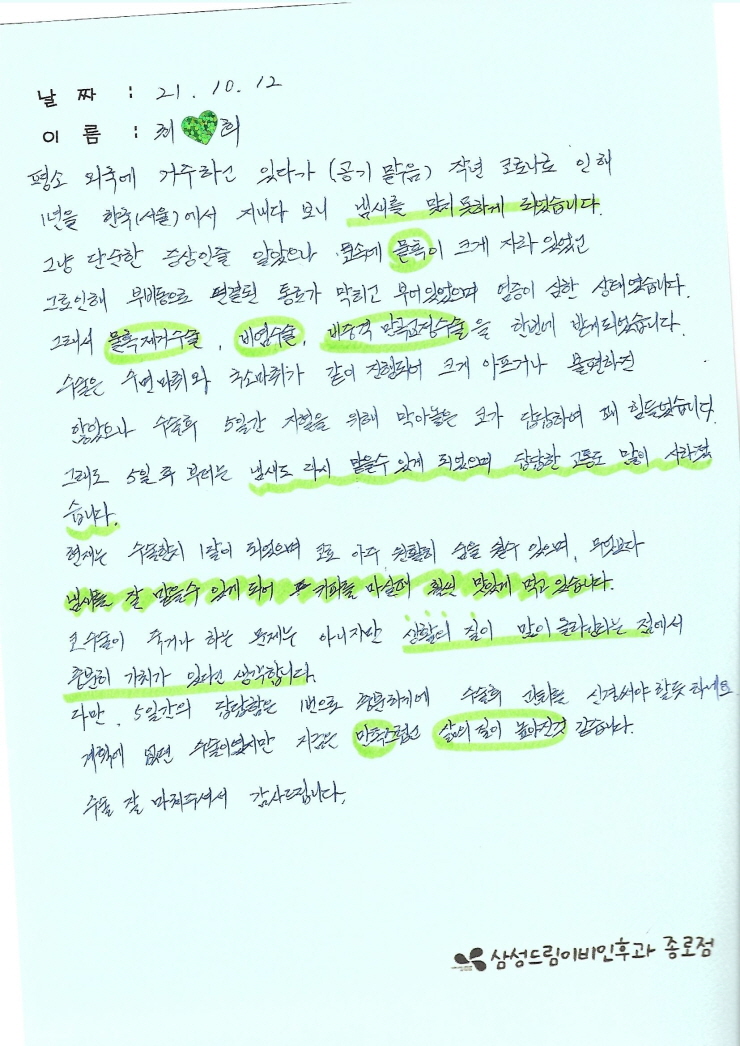 날 짜 : 21. 10. 12
이 름 : 최 희
평소 외국에 거주하고 있다가 (공기 맑음) 작년 코로나로 인해
1년을 한국(서울)에서 지내다 보니 냄새를 맡지 못하게 되었습니다.
그냥 단순한 증상인줄 알았으나 코속에 물혹이 크게 자라 있었고
그로인해 부비동으로 연결된 통로가 막히고 부어있었으며 염증이 심한 상태였습니다.
그래서 물혹제거수술, 비염수술, 비중격 만곡교정수술을 한번에 받게되었습니다.
수술은 수면마취와 국소마취가 같이 진행되어 크게 아프거나 불편하진
않았으나 수술후 5일간 지혈을 위해 막아놓은 코가 답답하여 꽤 힘들었습니다.
그래도 5일 후 부터는 냄새도 다시 맡을수 있게 되었으며 답답한 고통도 많이 사라졌
습니다.
현재는 수술한지 1달이 되었으며 코로 아주 원활히 숨을 쉴수 있으며, 무엇보다
냄새를 잘 맡을수 있게 되어 커피를 마실때 훨씬 맛있게 먹고 있습니다.
코수술이 죽거나 하는 문제는 아니지만 생활의 질이 많이 올라간다는 점에서
충분히 가치가 있다고 생각합니다.
다만, 5일간의 답답함은 1번으로 충분하기에 수술후 관리를 신경써야 할듯 하네요
계획에 없던 수술이였지만 지금은 만족스럽고 삶의 질이 높아진것 같습니다.
수술 잘 마쳐주셔서 감사드립니다.
삼성드림이비인후과 종로점